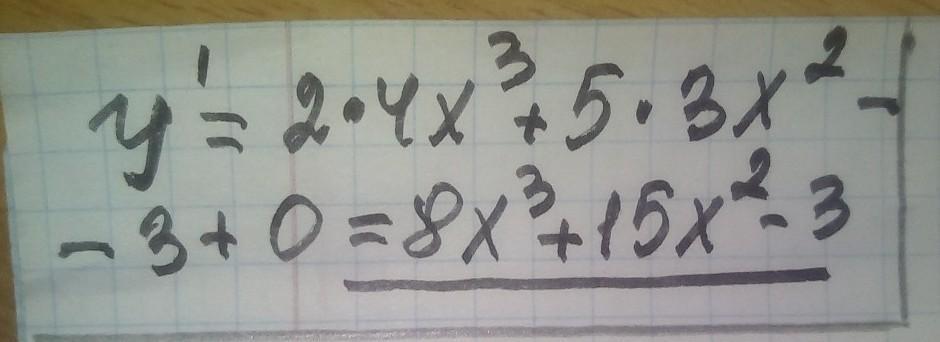 y' = 2·4x³+5·3x² -
- 3 + 0 = 8x³+15x² - 3